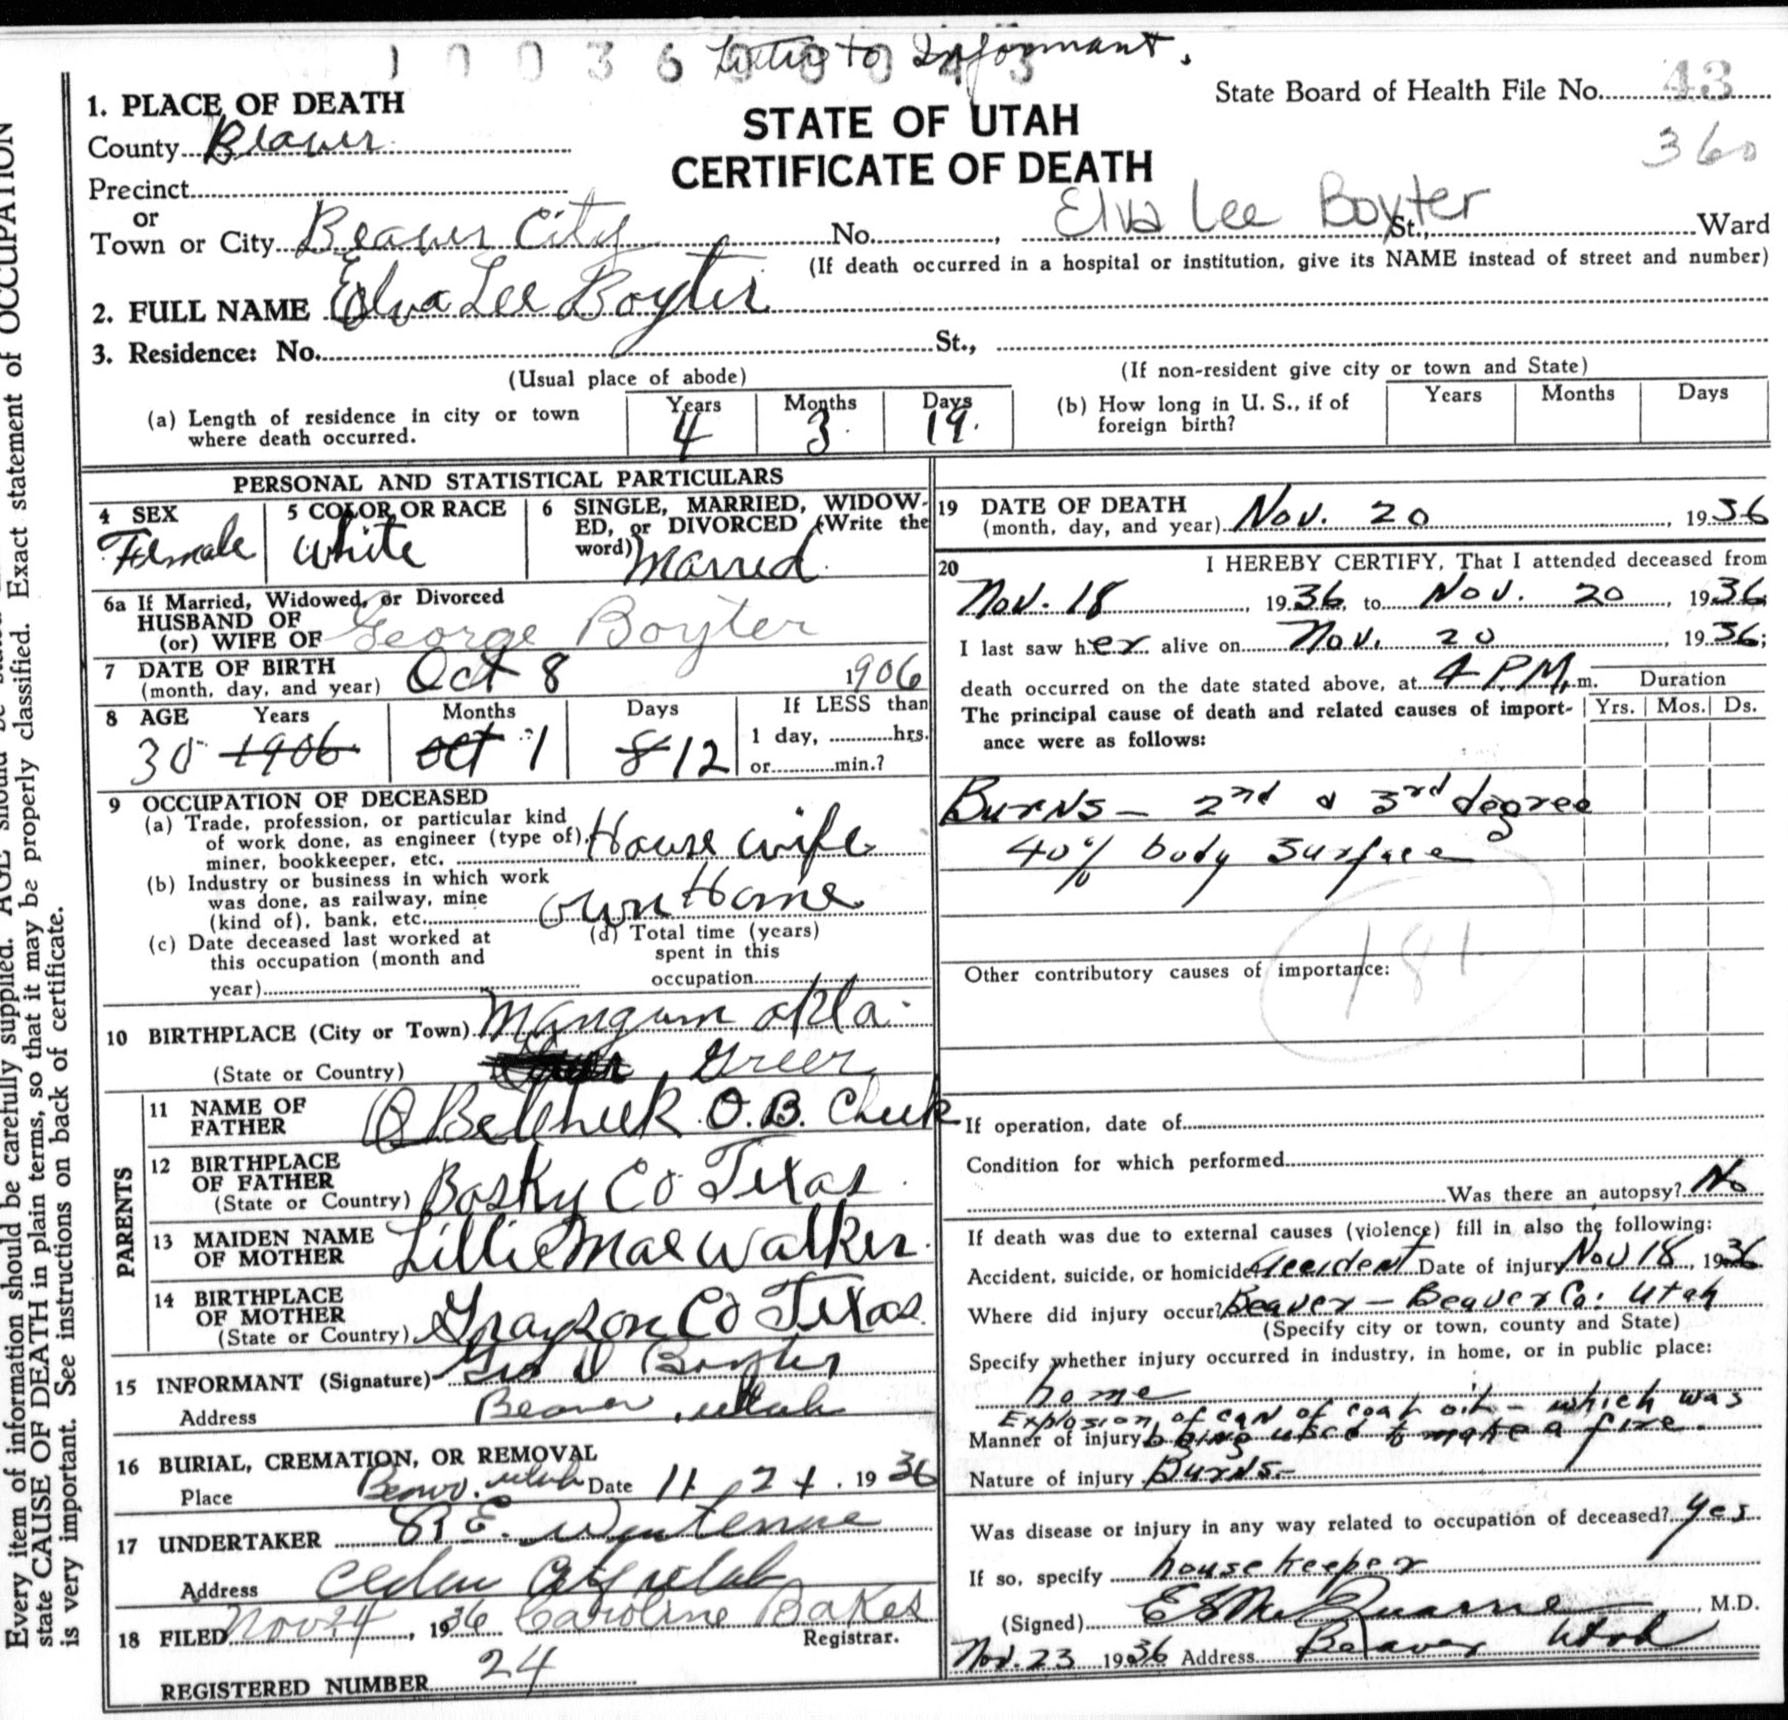 1003600043
Letter to Informant.
State Board of Health File No. 43
360
1. PLACE OF DEATH
County Beaver
Precinct
or
Town or City Beaver City No. , Elva Lee Boyter St., Ward
STATE OF UTAH
CERTIFICATE OF DEATH
(If death occurred in a hospital or institution, give its NAME instead of street and number)
2. FULL NAME Elva Lee Boyter
3. Residence: No. St.,
(Usual place of abode) (If non-resident give city or town and State)
(a) Length of residence in city or town where death occurred. Years 4 Months 3 Days 19.
(b) How long in U. S., if of foreign birth? Years Months Days
PERSONAL AND STATISTICAL PARTICULARS
4 SEX Female
5 COLOR OR RACE White
6 SINGLE, MARRIED, WIDOW-
ED, or DIVORCED (Write the
word) Married
6a If Married, Widowed, or Divorced
HUSBAND OF
(or) WIFE OF George Boyter
7 DATE OF BIRTH
(month, day, and year) Oct 8 1906
8 AGE Years Months Days If LESS than
30 1906 Oct 1 8 12 1 day, hrs.
or min.?
9 OCCUPATION OF DECEASED
(a) Trade, profession, or particular kind
of work done, as engineer (type of),
miner, bookkeeper, etc. House wife
(b) Industry or business in which work
was done, as railway, mine
(kind of), bank, etc. own Home
(c) Date deceased last worked at
this occupation (month and
year)
(d) Total time (years)
spent in this
occupation
10 BIRTHPLACE (City or Town) Mangum Okla.
(State or Country) Greer
PARENTS
11 NAME OF
FATHER O. B. Cheek
12 BIRTHPLACE
OF FATHER
(State or Country) Bosky Co Texas
13 MAIDEN NAME
OF MOTHER Lillie Mae Walker.
14 BIRTHPLACE
OF MOTHER
(State or Country) Grayson Co Texas.
15 INFORMANT (Signature) Geo D Boyter
Address Beaver, Utah
16 BURIAL, CREMATION, OR REMOVAL
Place Beaver, Utah Date 11 24, 1936
17 UNDERTAKER
Address Cedar City Utah
18 FILED Nov 24, 1936 Caroline Bakes
Registrar.
REGISTERED NUMBER 24
19 DATE OF DEATH
(month, day, and year) Nov. 20, 1936
20 I HEREBY CERTIFY, That I attended deceased from
Nov. 18, 1936, to Nov. 20, 1936
I last saw her alive on Nov. 20, 1936;
death occurred on the date stated above, at 4 P.M. m.
Duration
Yrs. Mos. Ds.
The principal cause of death and related causes of import-
ance were as follows:
Burns - 2nd & 3rd degree
40% body surface
181
Other contributory causes of importance:
If operation, date of
Condition for which performed
Was there an autopsy? No
If death was due to external causes (violence) fill in also the following:
Accident, suicide, or homicide? Accident Date of injury Nov 18, 1936
Where did injury occur? Beaver - Beaver Co. Utah
(Specify city or town, county and State)
Specify whether injury occurred in industry, in home, or in public place:
home
Explosion of can of coal oil - which was
Manner of injury being used to make a fire.
Nature of injury Burns-
Was disease or injury in any way related to occupation of deceased? yes
If so, specify housekeeper
(Signed) , M.D.
Nov. 23 1936 Address Beaver Utah
Every item of information should be carefully supplied. AGE should be
state CAUSE OF DEATH in plain terms, so that it may be properly classified. Exact statement of OCCUPATION
is very important. See instructions on back of certificate.